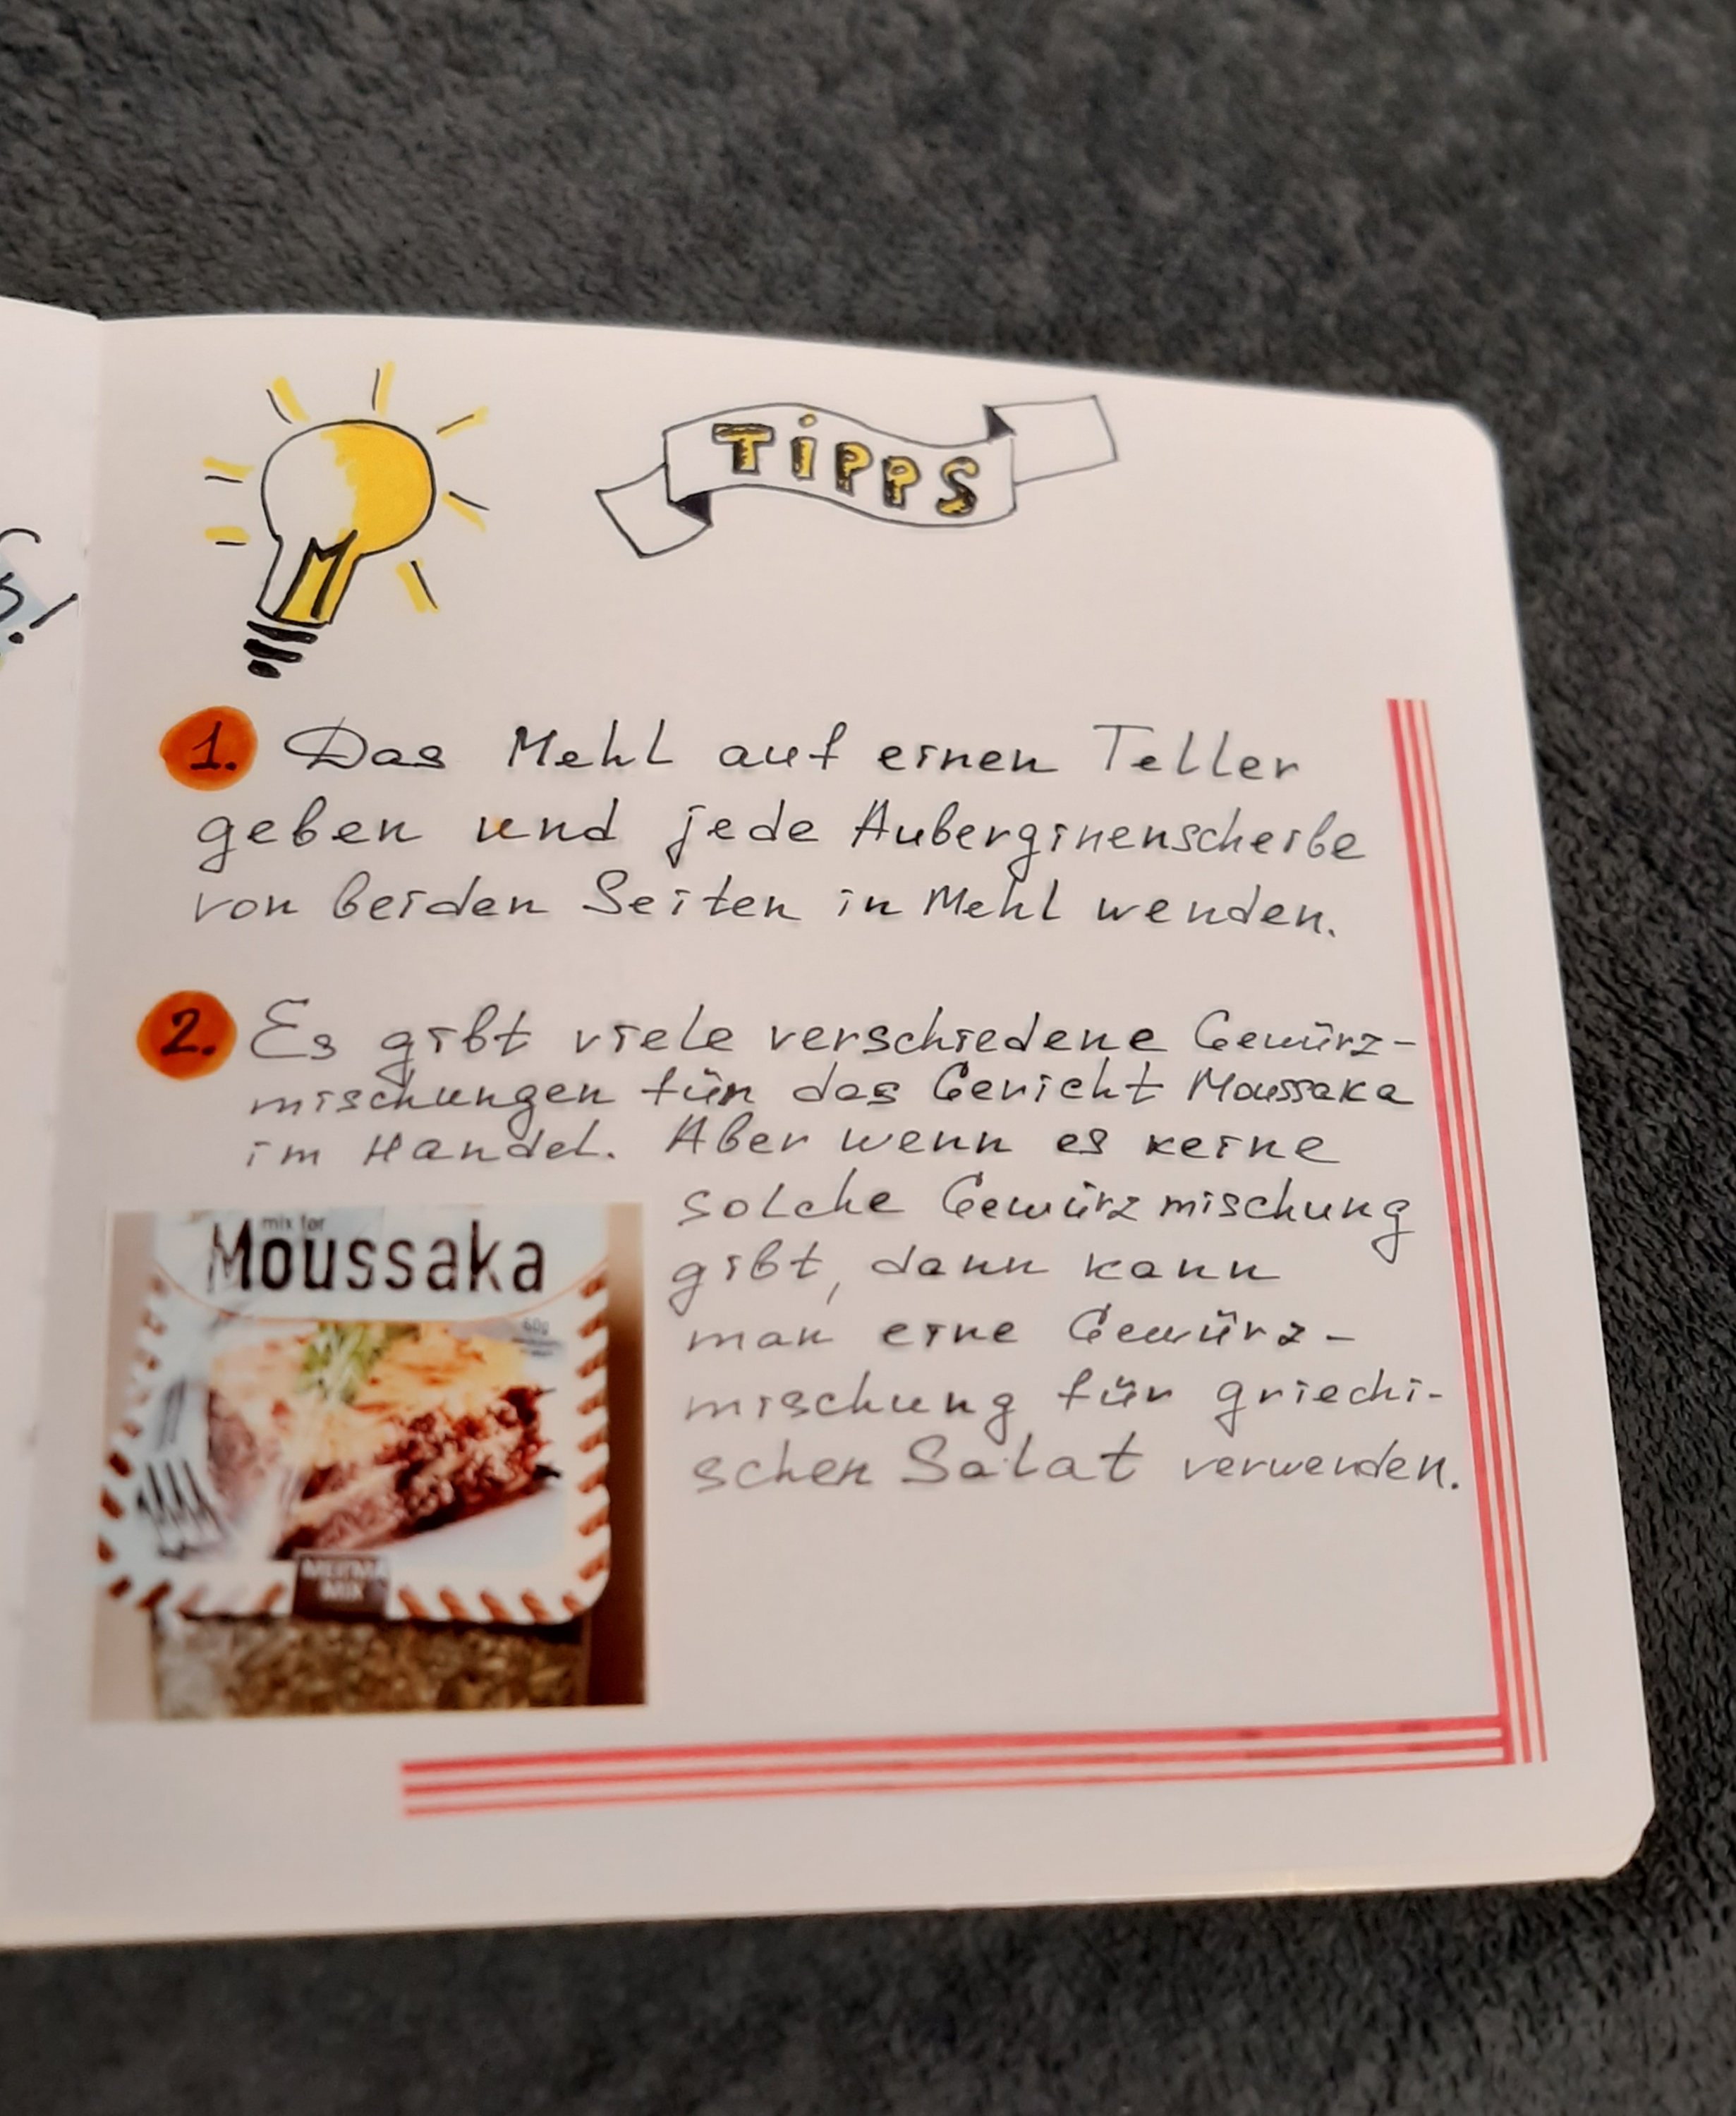 TiPPS
1. Das Mehl auf einen Teller
geben und jede Auberginenscheibe
von beiden Seiten in Mehl wenden.
2. Es gibt viele verschiedene Gewürz-
mischungen für das Gericht Moussaka
im Handel. Aber wenn es keine
solche Gewürzmischung
gibt, dann kann
man eine Gewürz-
mischung für griechi-
schen Salat verwenden.
mix for
Moussaka
60g
MIX